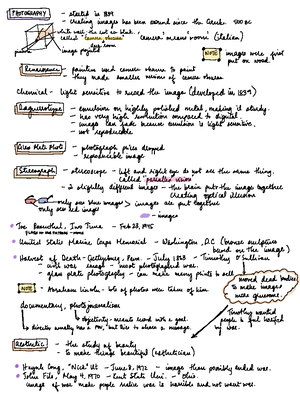 PHOTOGRAPHY - started in 1839
- creating images has been around since the Greeks 500 BC
white wall, the rest are black
called "camera obscura" camera means room (italian)
dark room
image projected
NOTE images were first
put on wood.
Renaissance - painters used camera obscura to paint
- They made smaller versions of camera obscura
chemical - light sensitive to record the image (developed in 1839)
Daguerreotype - emulsion on highly polished metal, making it sturdy.
- has very high resolution compared to digital
- image can fade because emulsion is light sensitive.
- not reproducable
Glass Wet Plate - photograph prices dropped
- reproducable image
Stereograph - stereoscope - left and right eye do not see the same thing.
called "parallax vision"
- 2 slightly different images - the brain puts the image together
creating optical illusion
only see blue images > images are put together
only see red image
- images
Joe Rosenthal, Iwo Jima - Feb 23, 1945
United States Marine Corps Memorial - Washington, DC (bronze sculpture
based on the image)
Harvest of Death - Gettysburg, Penn. - July 1863 - Timothy O'Sullivan
- civil war image - most photographed war.
- glass plate photography - can make many prints to sell
moved dead bodies
to make images
more gruesome.
NOTE - Abraham Lincoln - lots of photos were taken of him
documentary, photojournalism
objectivity - meant record with a goal.
directly usually has a POV, but tries to share a message.
Timothy wanted
people to feel horrified
by war.
Aesthetic - the study of beauty
- to make things beautiful (aesthetician)
Huynh Cong, "Nick" Ut - June 8, 1972 - image that possibly ended war.
John Filo, May 4, 1970 - Kent State Univ. - Ohio.
image of war make people realize war is horrible and not want war.